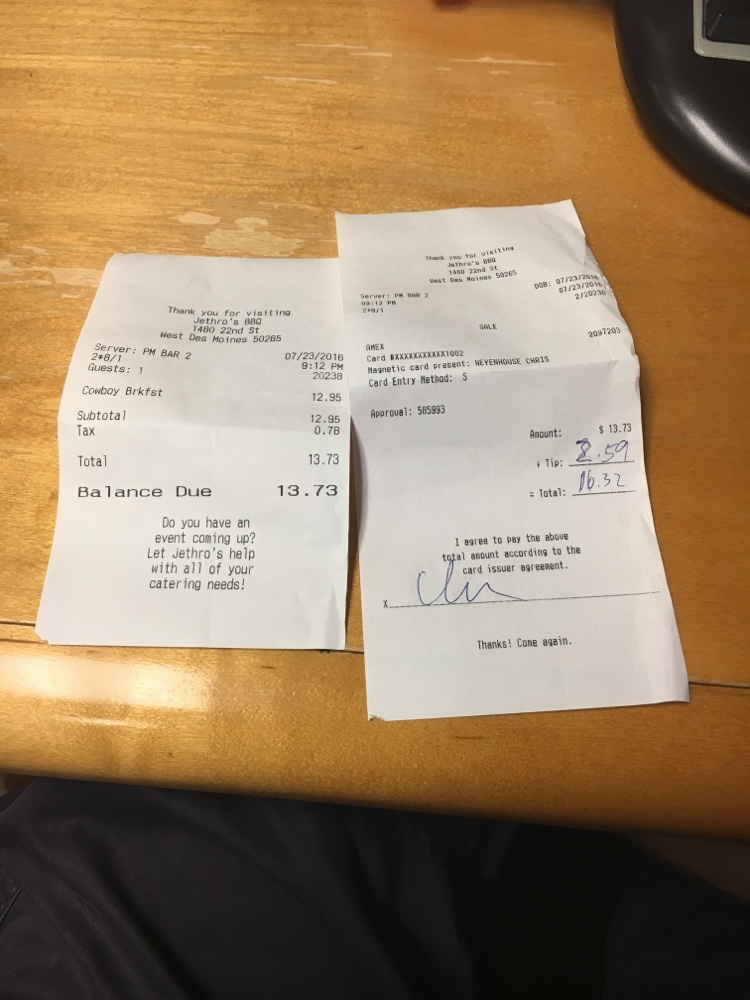 Thank you for visiting
Jethro's BBQ
1480 22nd St
West Des Moines 50265
Server: PM BAR 2 07/23/2016
2*8/1 9:12 PM
Guests: 1 20238
Cowboy Brkfst 12.95
Subtotal 12.95
Tax 0.78
Total 13.73
Balance Due 13.73
Do you have an
event coming up?
Let Jethro's help
with all of your
catering needs!
Thank you for visiting
Jethro's BBQ
1480 22nd St
West Des Moines 50265
Server: PM BAR 2 DOB: 07/23/2016
09:12 PM 07/23/2016
2*8/1 2/20238
SALE
AMEX 2097203
Card #XXXXXXXXXXX1002
Magnetic card present: NEYENHOUSE CHRIS
Card Entry Method: S
Approval: 505993
Amount: $ 13.73
+ Tip: 2.59
= Total: 16.32
I agree to pay the above
total amount according to the
card issuer agreement.
X
Thanks! Come again.